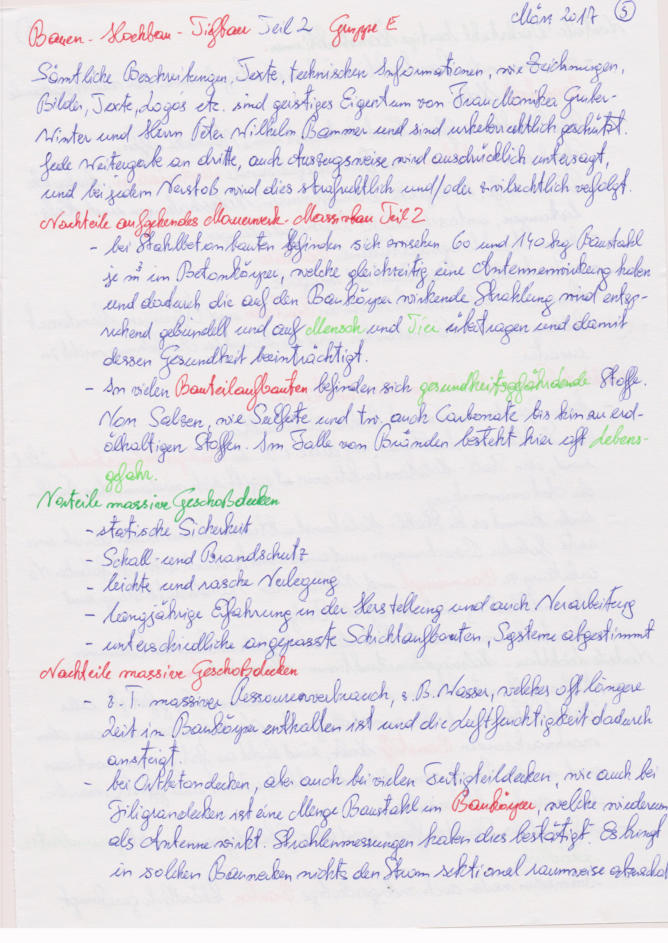 März 2017 5
Bauen - Hochbau - Tiefbau Teil 2 Gruppe E
Sämtliche Beschreibungen, Texte, technischen Informationen, wie Zeichnungen,
Bilder, Texte, Logos etc. sind geistiges Eigentum von Frau Monika Gruber-
Winter und Herrn Peter Wilhelm Bammer und sind urheberrechtlich geschützt.
Jede Weitergabe an dritte, auch Auszugsweise wird ausdrücklich untersagt,
und bei jedem Verstoß wird dies strafrechtlich und/oder zivilrechtlich verfolgt.
Nachteile aufgehendes Mauerwerk - Massivbau Teil 2
- bei Stahlbetonbauten befinden sich zwischen 60 und 140 kg Baustahl
je m³ im Betonkörper, welche gleichzeitig eine Antennenwirkung haben
und dadurch die auf den Baukörper wirkende Strahlung wird entsp-
rechend gebündelt und auf Mensch und Tier übertragen und damit
dessen Gesundheit beeinträchtigt.
- In vielen Bauteilaufbauten befinden sich gesundheitsgefährdende Stoffe.
Von Salzen, wie Sulfate und tw. auch Carbonate bis hin zu erd-
ölhaltigen Stoffen. Im Falle von Bränden besteht hier oft Lebens-
gefahr.
Vorteile massive Geschoßdecken
- statische Sicherheit
- Schall- und Brandschutz
- leichte und rasche Verlegung
- langjährige Erfahrung in der Herstellung und auch Verarbeitung
- unterschiedliche angepasste Schichtaufbauten, Systeme abgestimmt
Nachteile massive Geschoßdecken
- z.T. massiver Ressourcenverbrauch, z.B. Wasser, welches oft längere
Zeit im Baukörper enthalten ist und die Luftfeuchtigkeit dadurch
ansteigt.
- bei Ortbetondecken, aber auch bei vielen Fertigteildecken, wie auch bei
Filigrandecken ist eine Menge Baustahl im Baukörper, welche wiederum
als Antenne wirkt. Strahlenmessungen haben dies bestätigt. Es bringt
in solchen Bauwerken nichts den Strom sektional raumweise